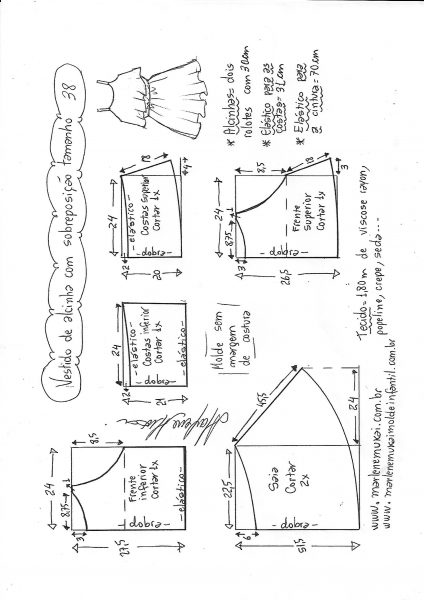 Vestido de alcinha com sobreposição tamanho 38
24
8,75
1
8,5
3
27,5
Frente
inferior
cortar 1x
-dobra-
-elástico-
24
2
21
-elástico-
Costas inferior
Cortar 1x
-elástico-
24
18
4
2
20
-elástico-
Costas superior
Cortar 1x
-dobra-
* Alcinhas= dois
rolotes com 30cm
* Elástico para as
costas= 31cm
* Elástico para
a cintura=70cm
Molde sem
margem
de costura
24
8,75
1
8,5
18
3
3
26,5
Frente
Superior
cortar 1x
-dobra-
22,5
45,5
24
6
51,5
Saia
Cortar
2x
-dobra-
Tecido=1,80m de viscose rayon,
popeline, crepe, seda...
www.marlenemukai.com.br
www.marlenemukaimoldeinfantil.com.br